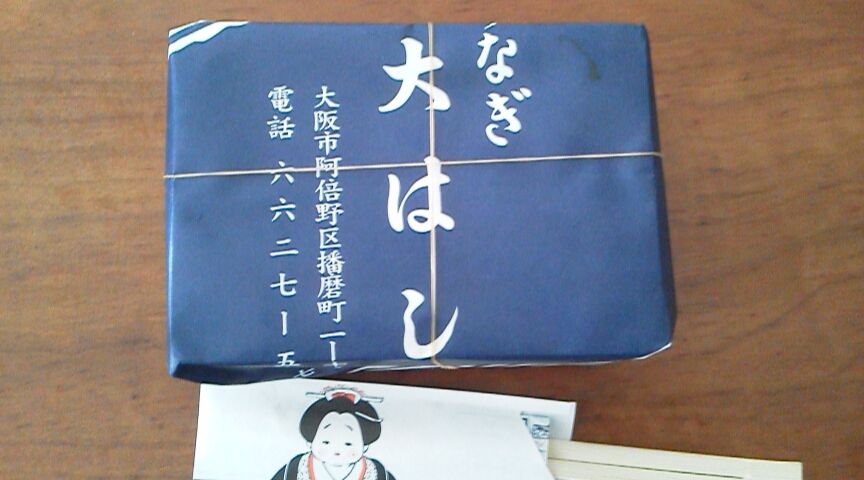 なぎ
大はし
大阪市阿倍野区播磨町一ー
電話 六六二七ー五